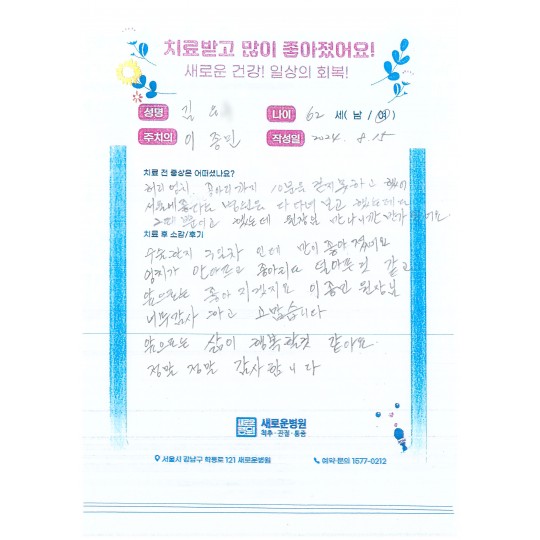 치료받고 많이 좋아졌어요!
새로운 건강! 일상의 회복!
성명 김
나이 62 세( 남 / 여 )
주치의 이종민
작성일 2024. 8. 15
치료 전 증상은 어떠셨나요?
허리 엉치. 종아리까지 10분을 걷지못하고
서울에 좋다는 병원은 다 다녀 보고
치료 후 소감/후기
수술한지 3일차 인데 많이 좋아 졌네요
엉치가 안아프고 종아리도 덜아픈것 같고
앞으로는 좋아 지겠지요 이종민 원장님
너무감사 하고 고맙습니다
앞으로는 삶이 행복할것 같아요.
정말 정말 감사합니다
새로운병원
새로운병원
척추·관절·통증
서울시 강남구 학동로 121 새로운병원
예약·문의 1577-0212